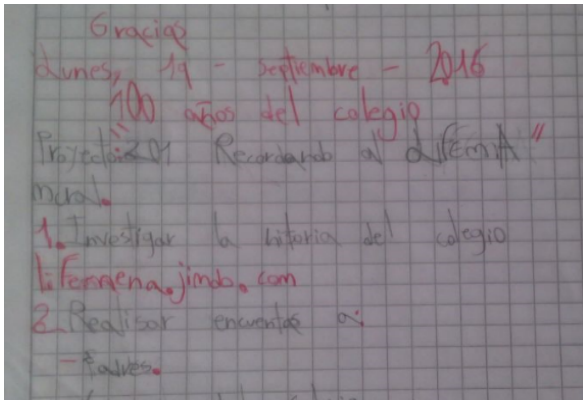 Gracias
Lunes, 19 - septiembre - 2016
100 años del colegio
Recordando al
moral.
1. Investigar la hitoria del colegio
lifemena.jimdo.com
2. Realisar encuentas a: